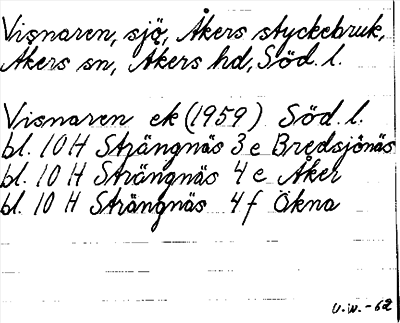 Visnaren, sjö, Åkers styckebruk,
Åkers sn, Åkers hd, Söd. l.
Visnaren ek (1959) Söd. l.
bl. 10 H Strängnäs 3 e Bredsjönäs
bl. 10 H Strängnäs 4 e Åker
bl. 10 H Strängnäs 4 f Ökna
U.W. -62